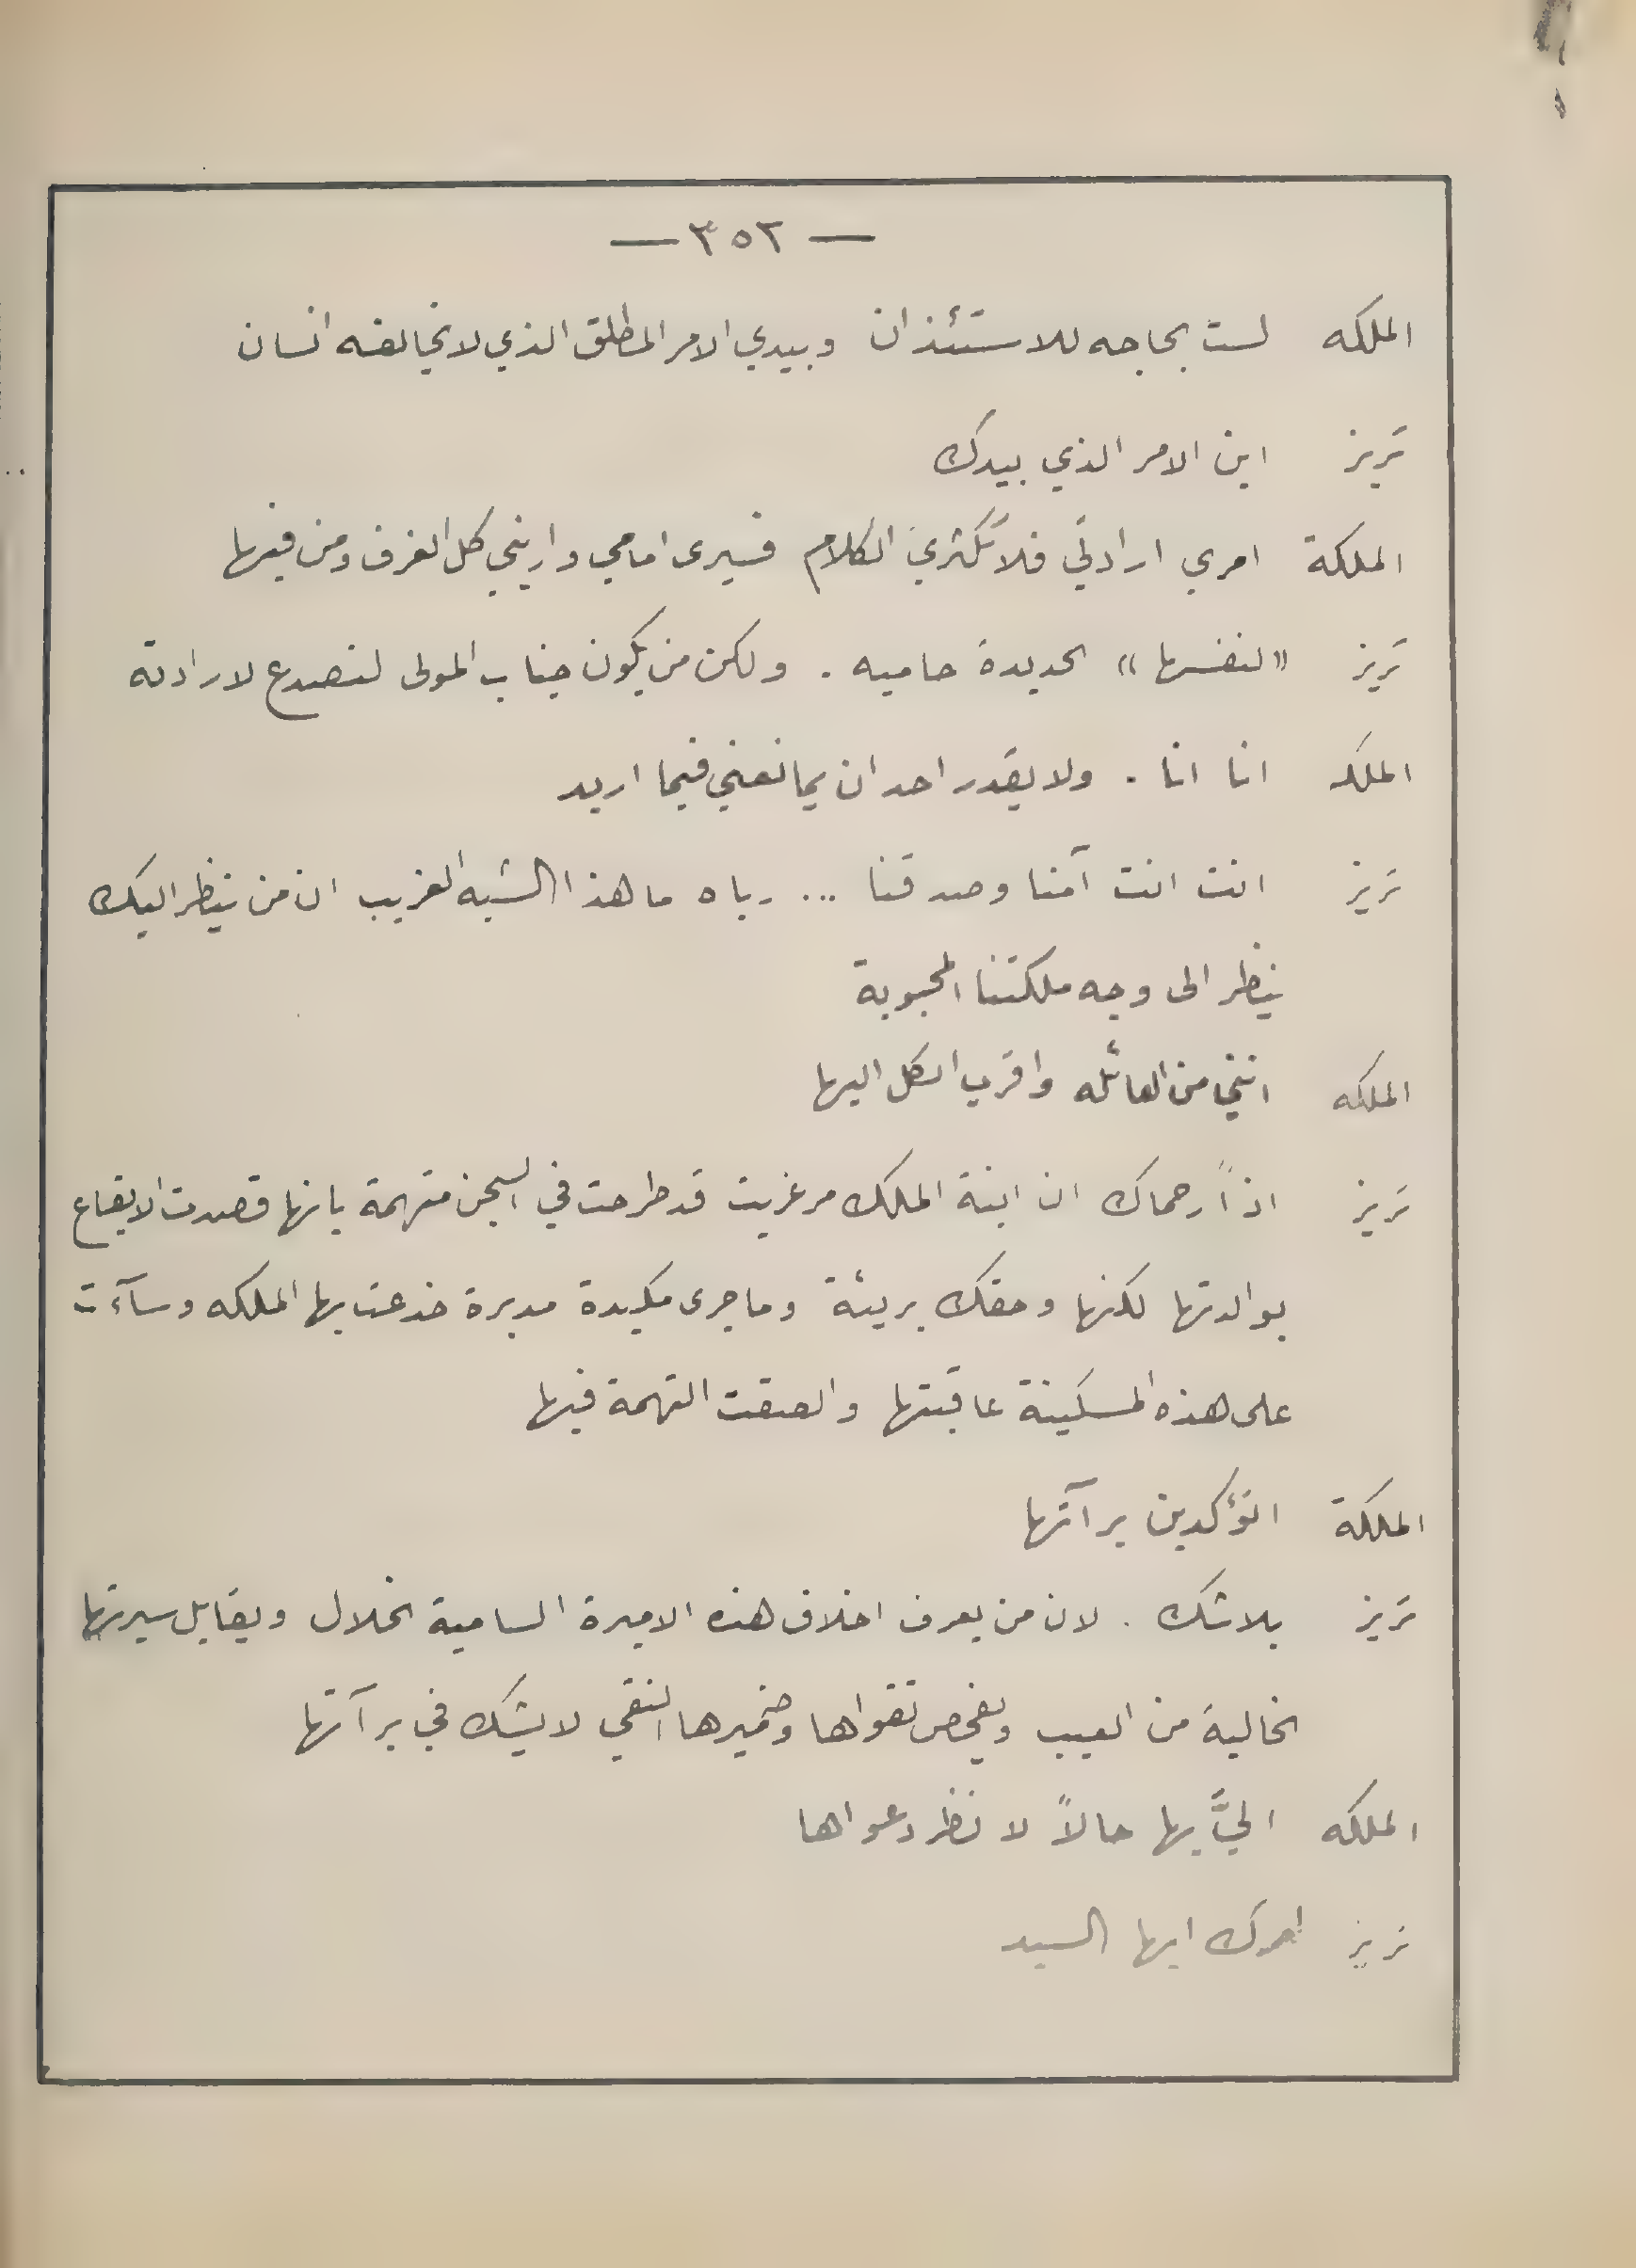 — ٣٥٢ —
الملكه لست بحاجه للاستئذان وبيدي الامر المطلق الذي لا يخالفه انسان
تريز اين الامر الذي بيدك
الملكة امري ارادتي فلا تكثري الكلام فسيرى امامي واريني كل الغرف ومن فيها
تريز «لنفسها» الحديدة حاميه . ولكن من يكون جناب المولى لنصدع لارادته
الملكه انا انا . ولا يقدر احد ان يمانعني فيما اريد
تريز انت انت آمنا وصدقنا ... رباه ما هذا الشبه الغريب ان من ينظر اليك
ينظر الى وجه ملكتنا المحبوبة
الملكه انني من العائله واقرب الكل اليها
تريز اذاً رحماك ان ابنة الملك مرغريت قد طرحت في السجن متهمة بانها قصدت الايقاع
بوالدتها لكنها وحقك بريئة وما جرى مكيدة مدبرة خدعت بها الملكه وسآءت
على هذه المسكينة عاقبتها والصقت التهمة فيها
الملكة اتؤكدين برآتها
تريز بلا شك . لان من يعرف اخلاق هذه الاميرة السامية الخلال ويقابل سيرتها
الخالية من العيب ويفحص تقواها وضميرها النقي لا يشك في برآتها
الملكه اليَّ بها حالاً لا نظر دعواها
تريز امرك ايها السيد